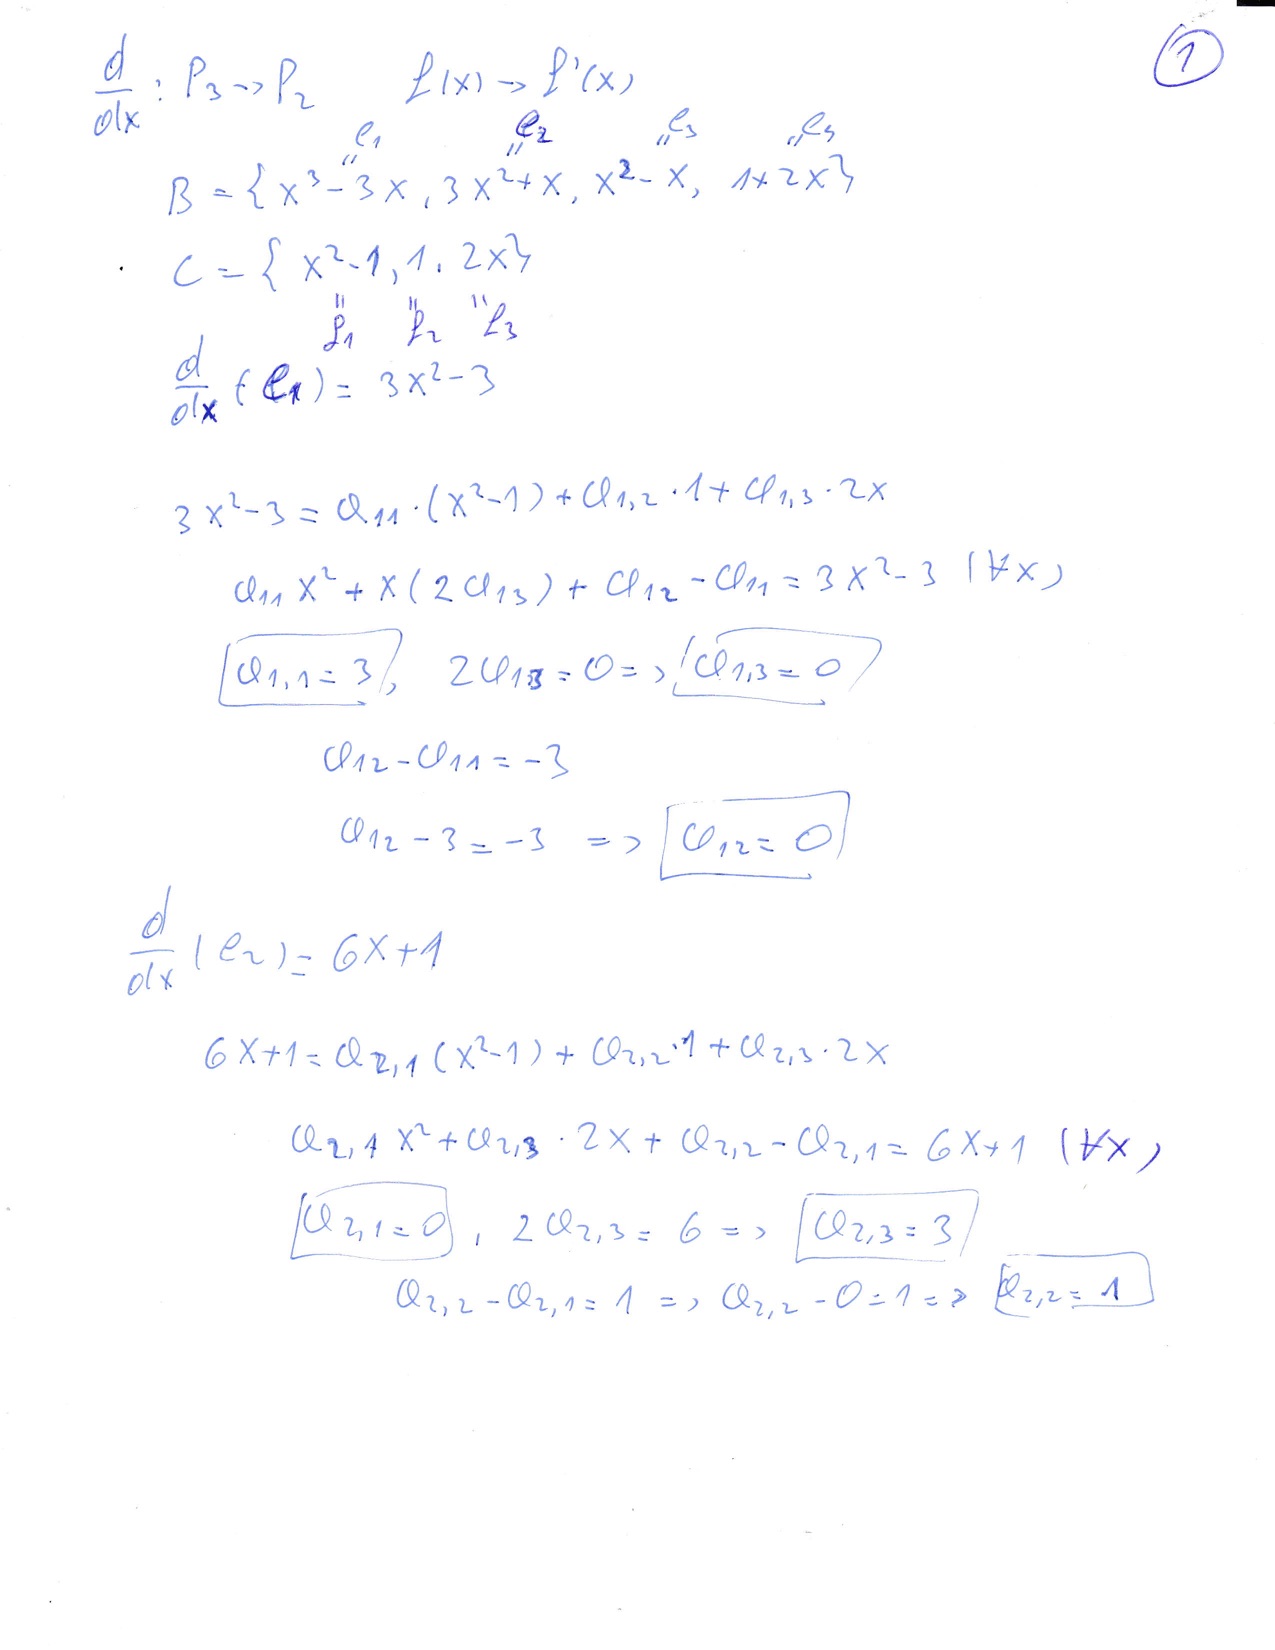 1
d/dx : P₃ → P₂ f(x) → f'(x)
e₁ e₂ e₃ e₄
B = { x³ - 3x, 3x² + x, x² - x, 1 + 2x }
C = { x² - 1, 1, 2x }
f₁ f₂ f₃
d/dx (e₁) = 3x² - 3
3x² - 3 = a₁₁ · (x² - 1) + a₁,₂ · 1 + a₁,₃ · 2x
a₁₁ x² + x (2 a₁₃) + a₁₂ - a₁₁ = 3x² - 3 (∀x)
a₁,₁ = 3, 2a₁₃ = 0 => a₁,₃ = 0
a₁₂ - a₁₁ = -3
a₁₂ - 3 = -3 => a₁₂ = 0
d/dx (e₂) = 6x + 1
6x + 1 = a₂,₁ (x² - 1) + a₂,₂ · 1 + a₂,₃ · 2x
a₂,₁ x² + a₂,₃ · 2x + a₂,₂ - a₂,₁ = 6x + 1 (∀x)
a₂,₁ = 0, 2a₂,₃ = 6 => a₂,₃ = 3
a₂,₂ - a₂,₁ = 1 => a₂,₂ - 0 = 1 => a₂,₂ = 1